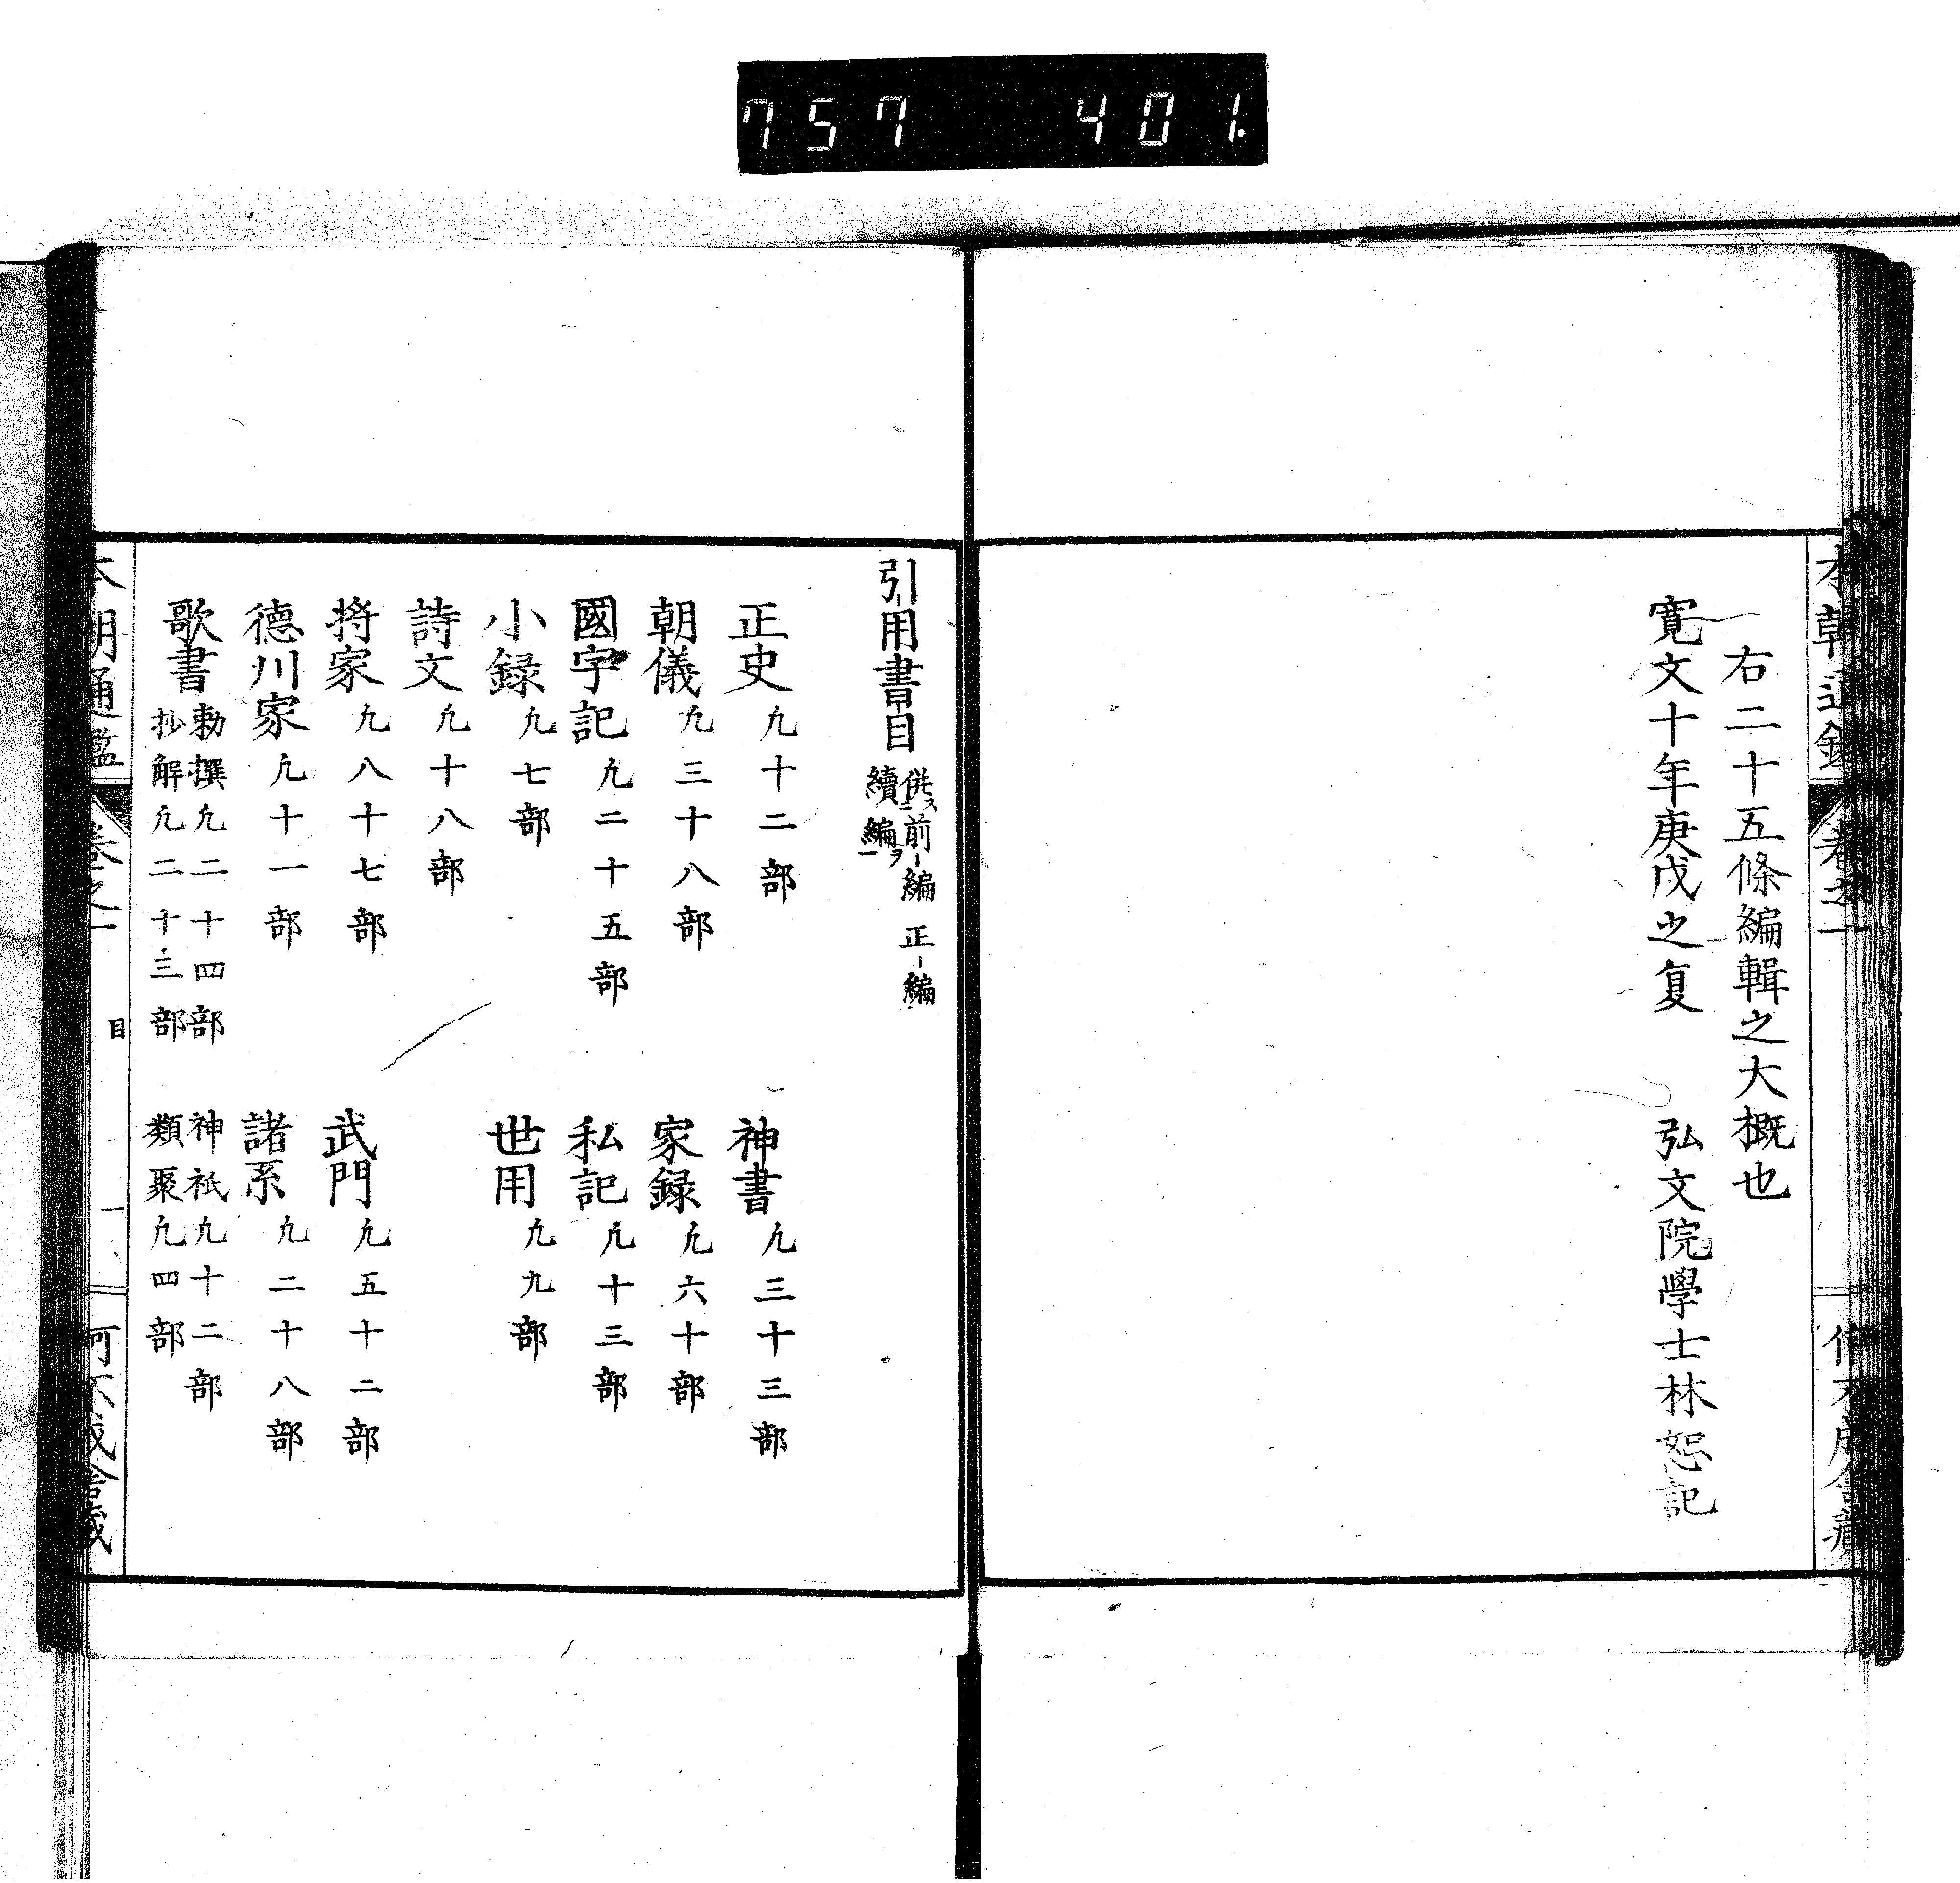 757 401.
右二十五條編輯之大概也
寛文十年庚戌之夏 弘文院學士林恕記
引用書目 併ス二前-編 正-編 續編ヲ一
正史 凢十二部 神書 凢三十三部
朝儀 凢三十八部 家録 凢六十部
國字記 凢二十五部 私記 凢十三部
小録 凢七部 世用 凢九部
詩文 凢十八部
将家 凢八十七部 武門 凢五十二部
德川家 凢十一部 諸系 凢二十八部
歌書 勅撰凢二十四部 神祇凢十二部
抄解凢二十三部 類聚凢四部
本朝通鑑 卷之一 目 一